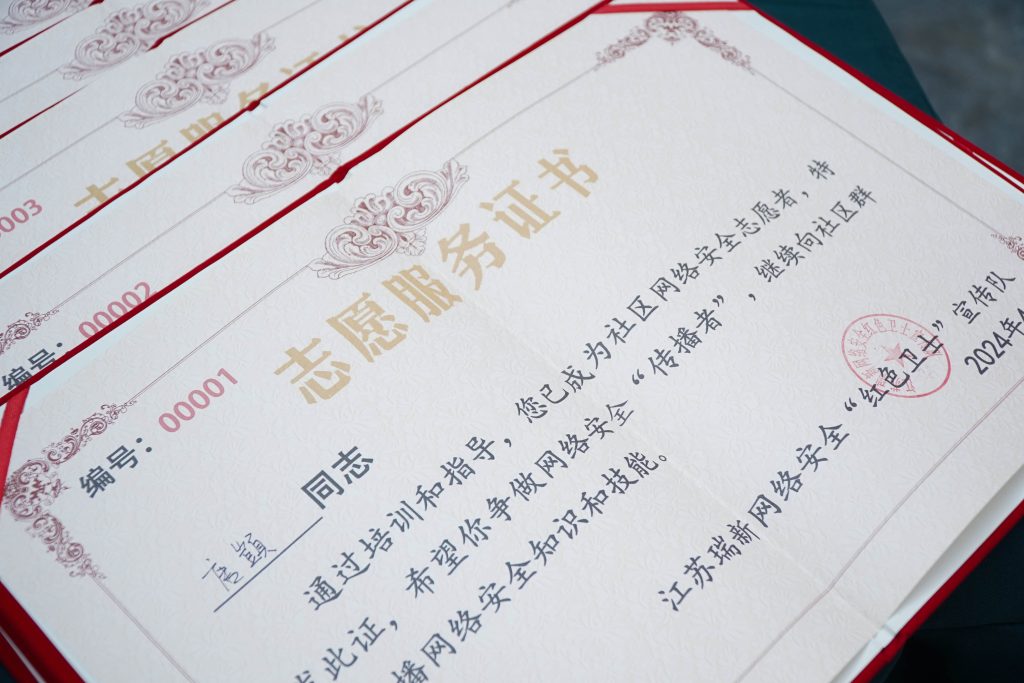 志愿服务证
003
编号：00002
志愿服务证书
编号：00001
同志
通过培训和指导，您已成为社区网络安全志愿者，特
发此证，希望你争做网络安全“传播者”，继续向社区群
播网络安全知识和技能。
江苏瑞新网络安全“红色卫士”宣传队
2024年4